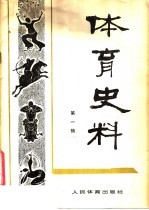 体育史料
第一辑
人民体育出版社